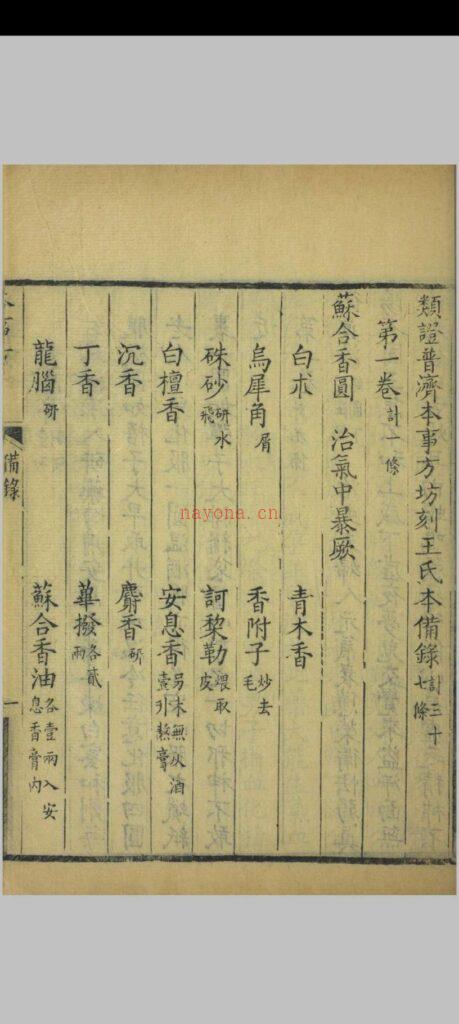 類證普濟本事方坊刻王氏本備錄計三十七條
第一卷計一條
蘇合香圓　治氣中暴厥
白朮　青木香
烏犀角屑　香附子炒去毛
硃砂研水飛　訶黎勒煨取皮
白檀香　安息香另末無灰酒壹升熬膏
沉香　麝香研
丁香　蓽撥各貳兩
龍腦研　蘇合香油各壹兩入安息香膏內
備錄　一
nayona.cn